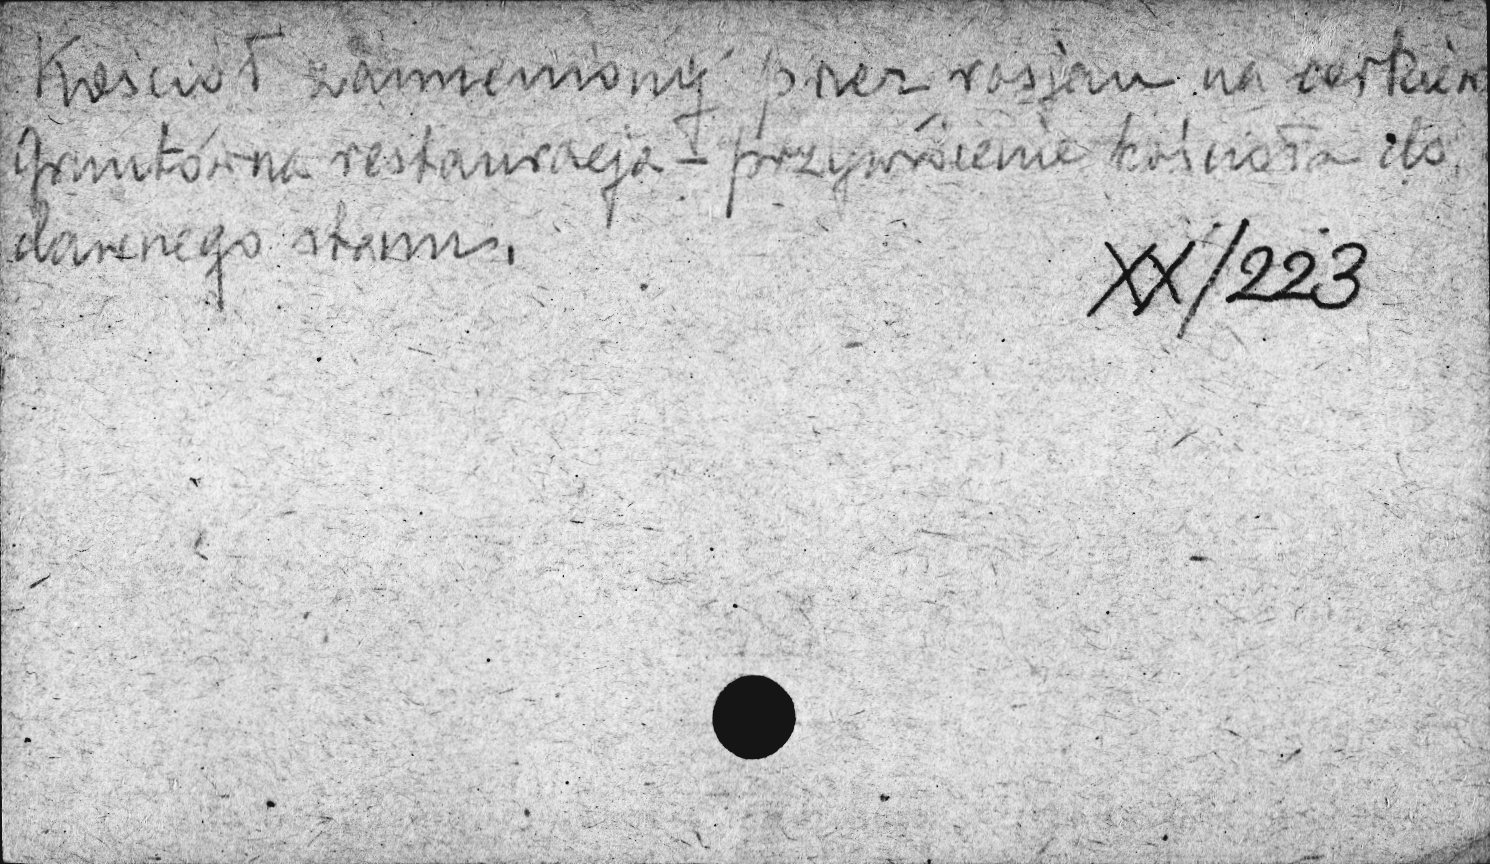 Kościół zamieniony przez rosjan na cerkiew
Gruntówna restauracja – przywrócenie kościoła do
dawnego stanu.
XX/223